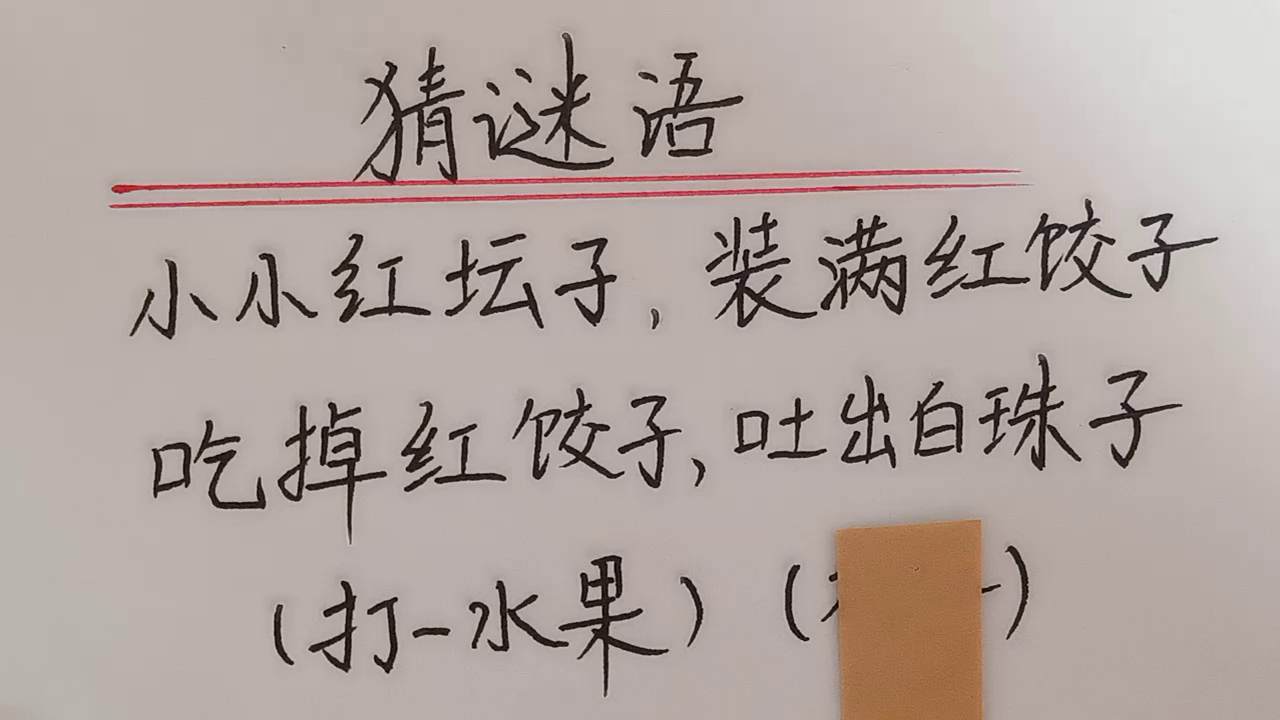 猜谜语
小小红坛子,装满红饺子
吃掉红饺子,吐出白珠子
(打一水果)( )